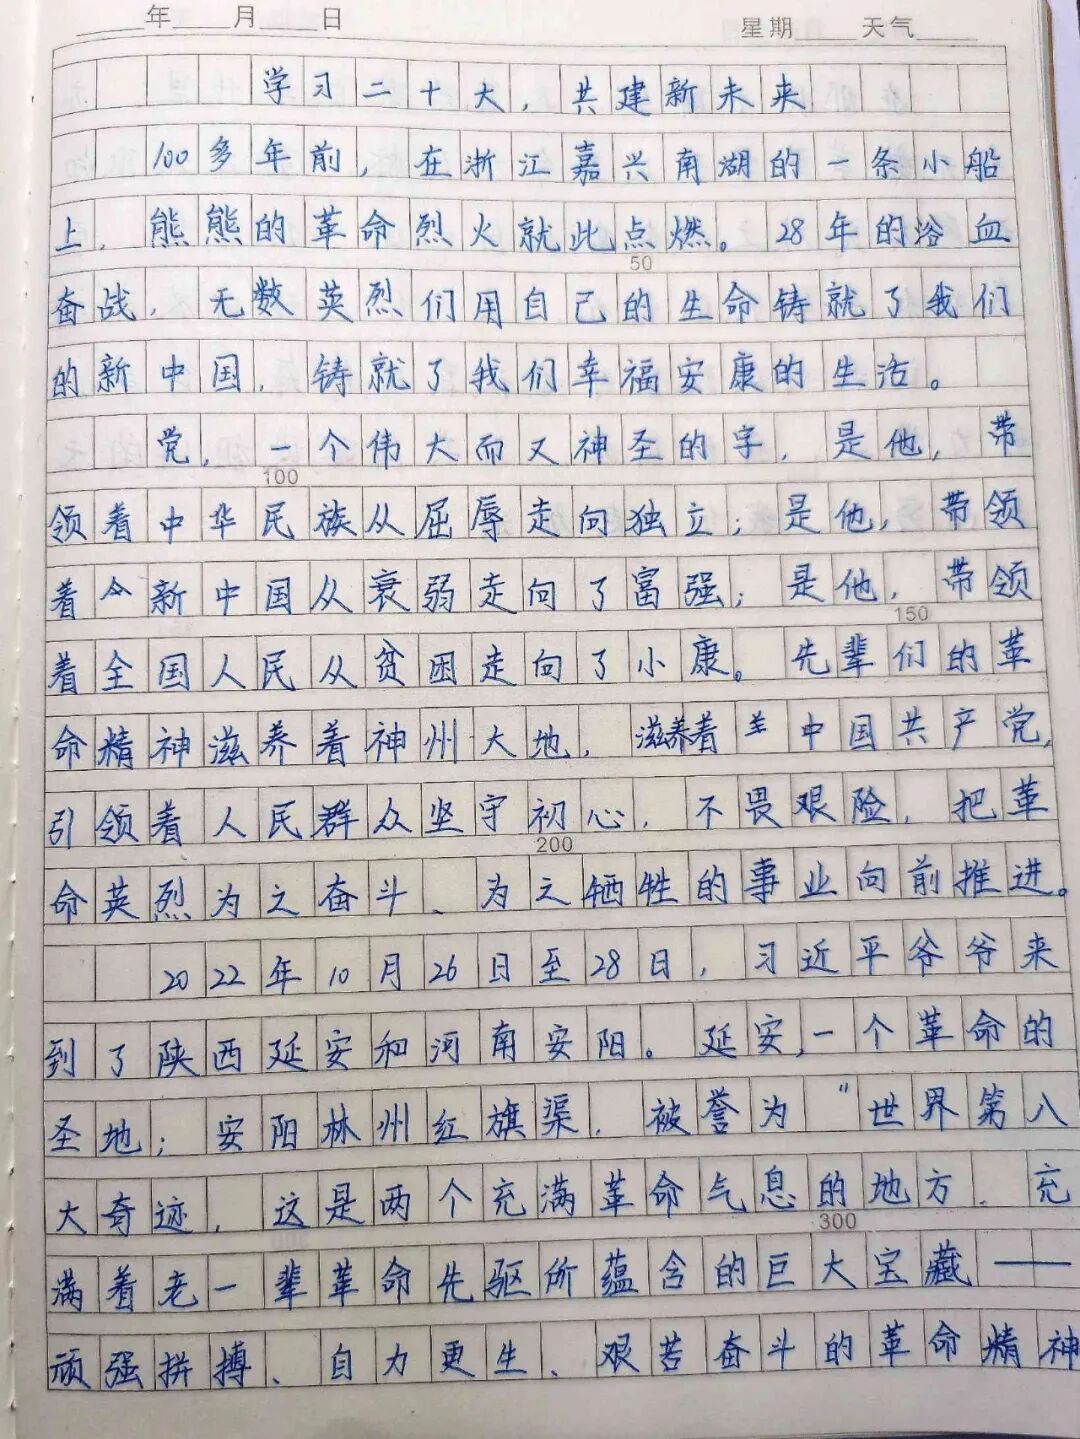 年 月 日 星期 天气
学习二十大，共建新未来
100多年前，在浙江嘉兴南湖的一条小船
上，熊熊的革命烈火就此点燃。28年的浴血
50
奋战，无数英烈们用自己的生命铸就了我们
的新中国，铸就了我们幸福安康的生活。
党，一个伟大而又神圣的字，是他，带
100
领着中华民族从屈辱走向独立；是他，带领
着今新中国从衰弱走向了富强；是他，带领
150
着全国人民从贫困走向了小康。先辈们的革
命精神滋养着神州大地，滋养着中国共产党，
引领着人民群众坚守初心，不畏艰险，把革
200
命英烈为之奋斗、为之牺牲的事业向前推进。
2022年10月26日至28日，习近平爷爷来
到了陕西延安和河南安阳。延安，一个革命的
圣地；安阳林州红旗渠，被誉为“世界第八
大奇迹，这是两个充满革命气息的地方，充
300
满着老一辈革命先驱所蕴含的巨大宝藏——
顽强拼搏、自力更生、艰苦奋斗的革命精神